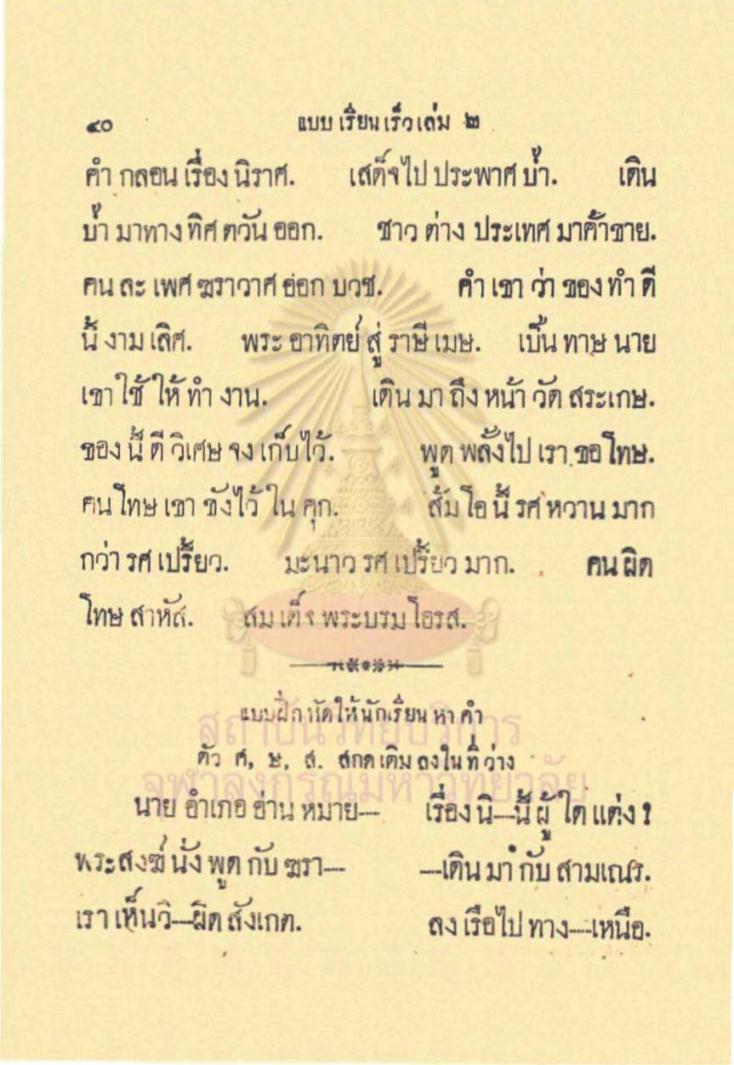 ๔๐ แบบ เรียน เร็ว เล่ม ๒
คำ กลอน เรื่อง นิราศ. เสด็จไป ประพาศ ป่า. เดิน
ป่า มาทาง ทิศ ตวัน ออก. ชาว ต่าง ประเทศ มาค้าขาย.
คน ละ เพศ ฆราวาศ ออก บวช. คำ เขา ว่า ของ ทำ ดี
นี้ งาม เลิศ. พระ อาทิตย์ สู่ ราษี เมษ. เป็น ทาษ นาย
เขา ใช้ ให้ ทำ งาน. เดิน มา ถึง หน้า วัด สระเกษ.
ของ นี้ ดี วิเศษ จง เก็บไว้. พูด พลั้งไป เรา ขอ โทษ.
คน โทษ เขา ขังไว้ ใน คุก. ส้ม โอ นี้ รศ หวาน มาก
กว่า รศ เปรี้ยว. มะนาว รศ เปรี้ยว มาก. คน ผิด
โทษ สาหัส. สม เด็จ พระบรม โอรส.
แบบฝึก หัด ให้ นักเรียน หา คำ
ตัว ศ, ษ, ส. สกด เติม ลงใน ที่ ว่าง
นาย อำเภอ อ่าน หมาย— เรื่อง นิ—นี้ ผู้ ใด แต่ง?
พระสงฆ์ นั่ง พูด กับ ฆรา— —เดิน มา กับ สามเณร.
เรา เห็นวิ—ผิด สังเกต. ลง เรือไป ทาง—เหนือ.
สถาบันวิทยบริการ
จุฬาลงกรณ์มหาวิทยาลัย